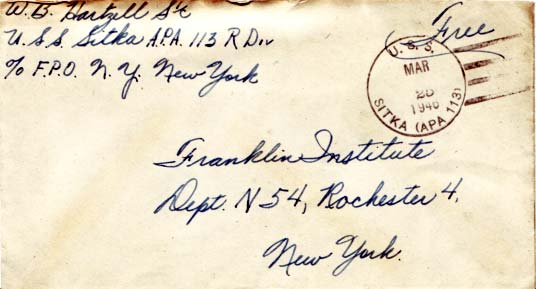 W. B. Hartzell S1/c
U.S.S. Sitka A.P.A. 113 R Div
℅ F.P.O. N.Y. New York
Free
U. S. S.
MAR
1946
SITKA (APA 113)
Franklin Institute
Dept. N 54, Rochester 4,
New York.